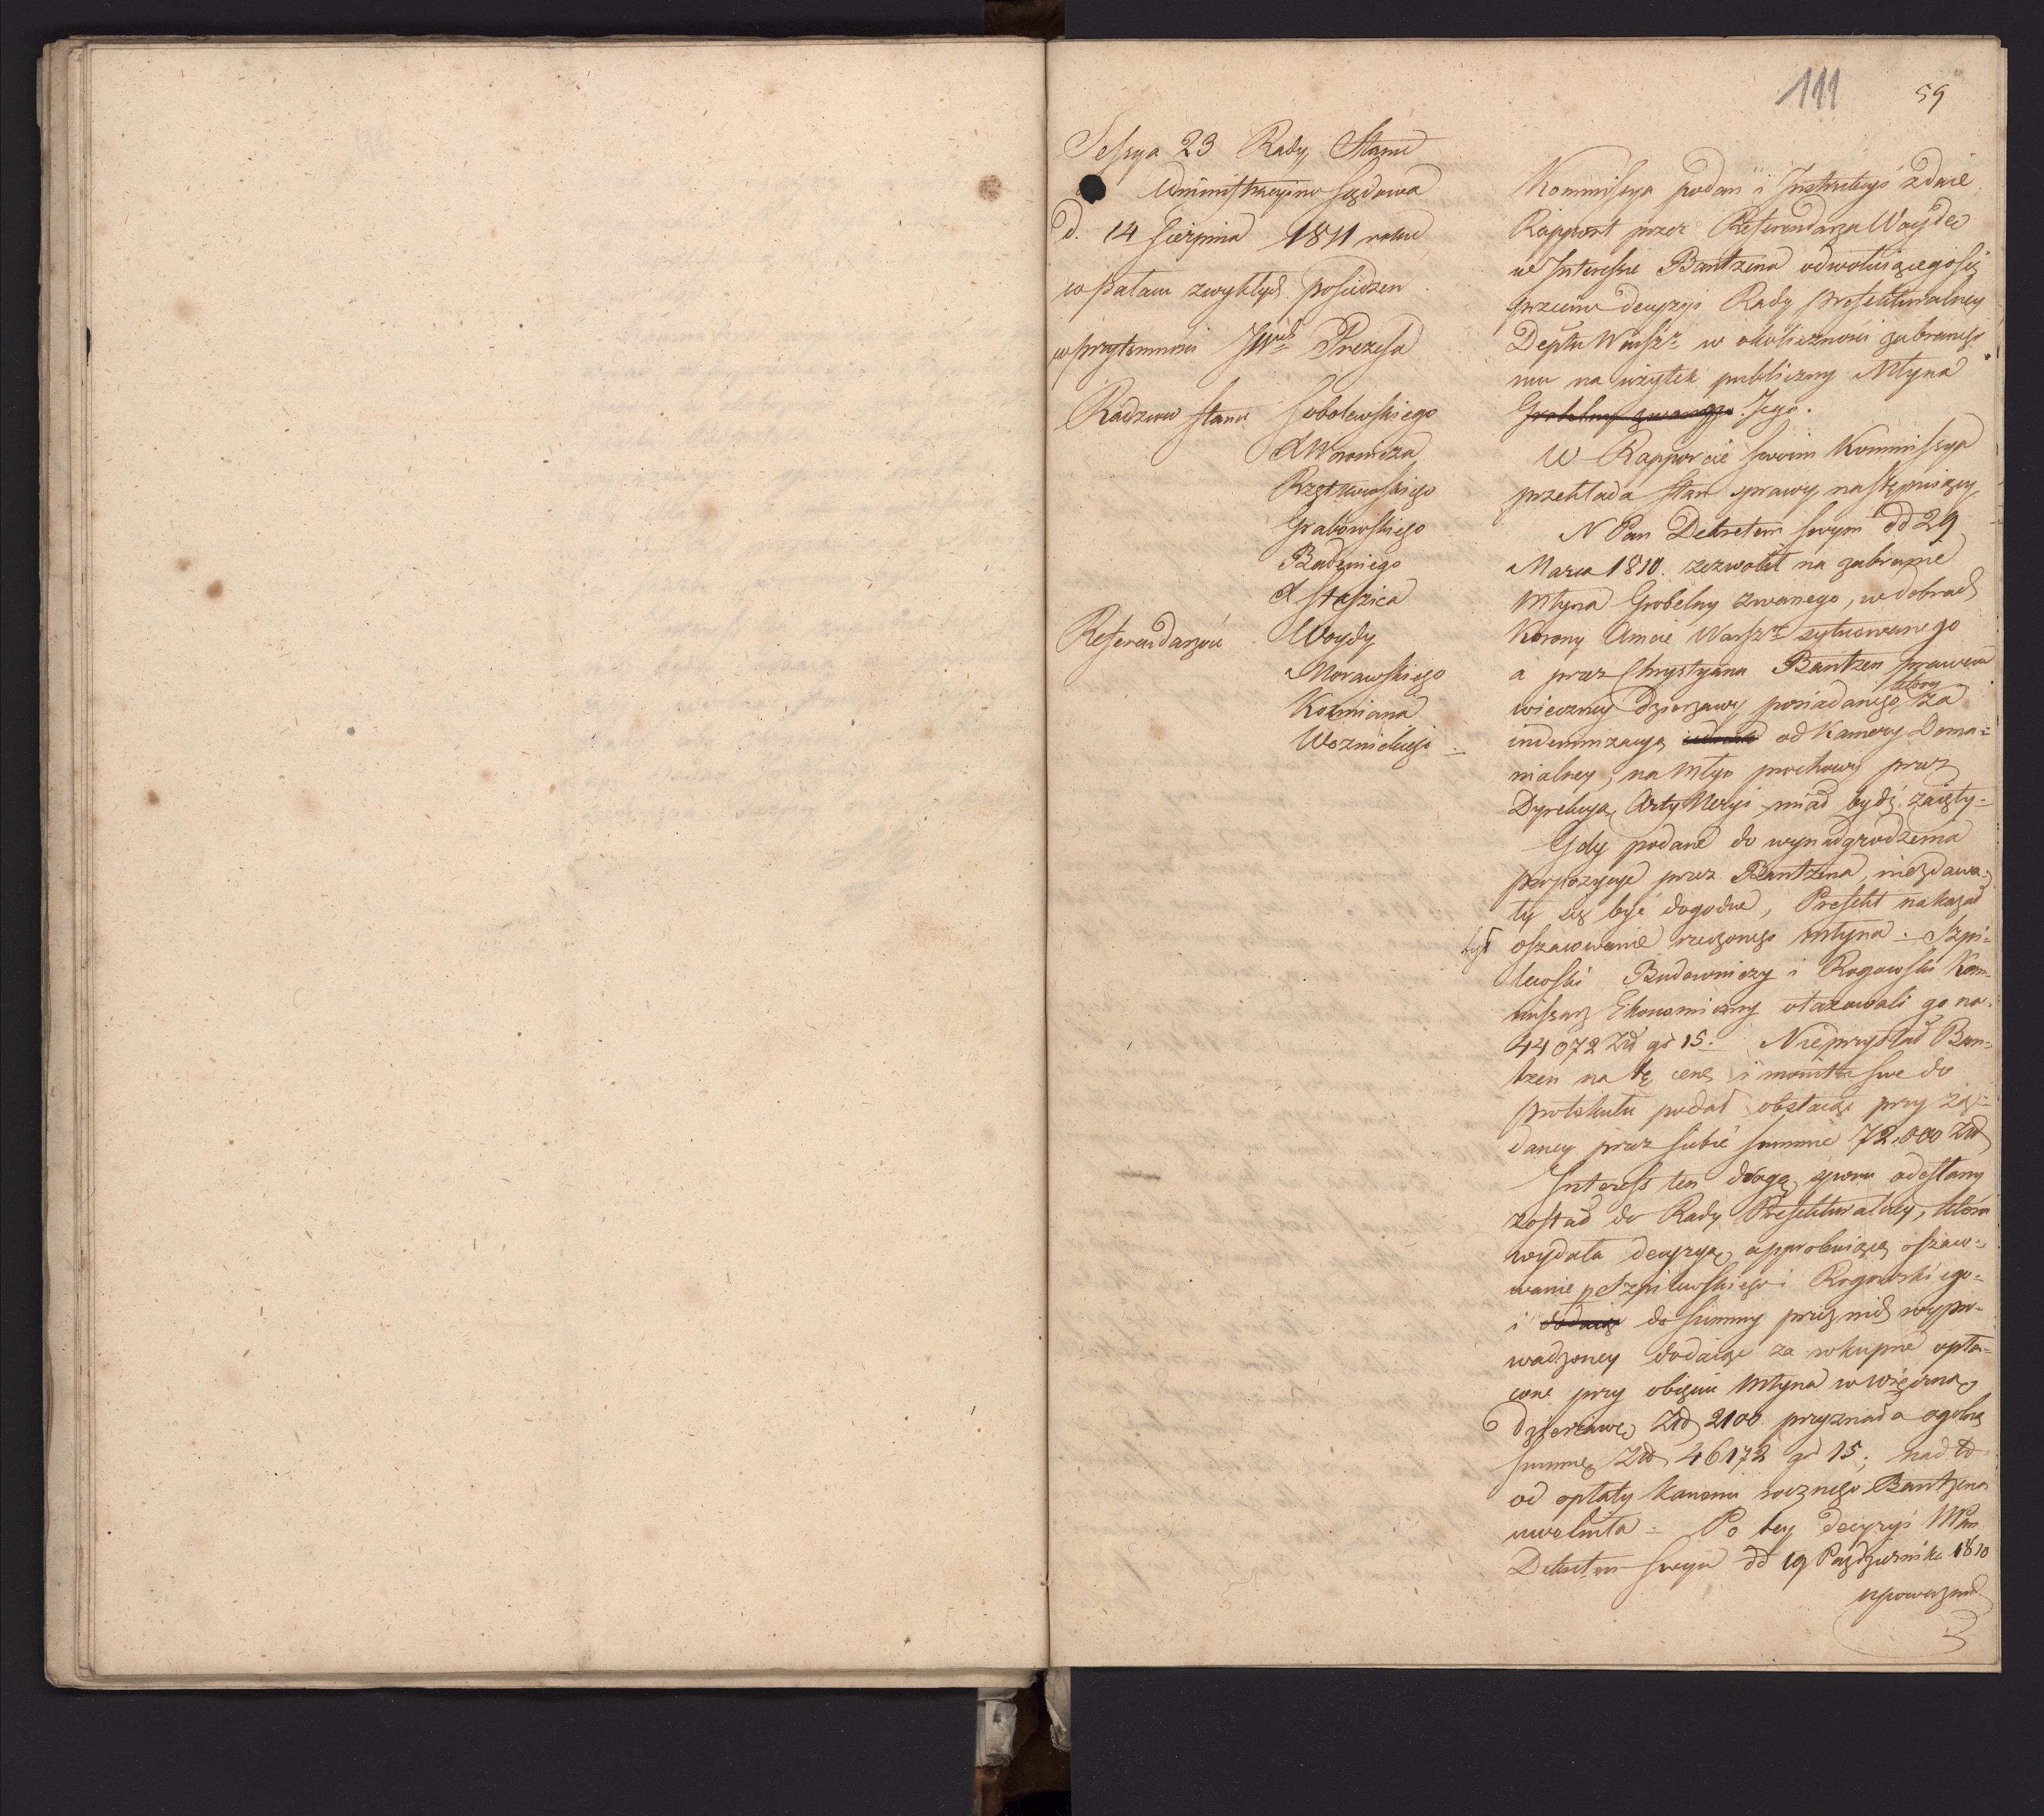 111 59
Sessya 23 Rady Stanu
Administracyino Sądowa
d. 14 Sierpnia 1811 roku
w pałacu zwykłych posiedzen
w przytomności JW Prezesa
Radzców Stanu Sobolewskiego
X Woronicza
Rzętkowskiego
Grabowskiego
Badeniego
X Staszica
Referendarzów Woydy
Morawskiego
Kozmiana
Woznickiego
Kommissya podań i Instrukcyi zdaie
Rapport przez Referendarza Woydę
w Interesie Bantzena odwołuiącego się
przeciw decyzyi Rady Prefekturalney
Deptu Warsz. w okoliczności zabranego
mu na użytek publiczny Młyna
Grobelny zwanego Jego.
W Rapporcie swoim Kommissya
przekłada stan sprawy następuiący
N Pan Dekretem swym dd 29
Marca 1810. zezwolił na zabranie
Młyna Grobelny zwanego, w dobrach
Korony Amcie Warsz. sytuowanego
a przez Chrystyana Bantzen prawem
wieczney Dzierzawy posiadanego, który za
indemnizacyą od Kamery Doma-
nialney, na Młyn prochowy przez
Dyrekcyą Artylleryi miał bydź zaięty.
Gdy podane do wynadgrodzenia
propozycye przez Bantzena, niezdawa-
ły się być dogodne, Prefekt nakazał
był oszacowanie rzeczonego Młyna. Szpi-
lewski Budowniczy i Rogowski Kom-
missarz Ekonomiczny otaxowali go na
44072 Złł gr 15. Nieprzystał Ban-
tzen na tę cenę i monita swe do
protokułu podał obstaiąc przy żą-
daney przez siebie summie 72,000 Złł
Interess ten drogą sporu odesłany
został do Rady Prefekturalney, która
wydała decyzyą approbuiącą oszaco-
wanie p Szpilewskiego i Rogowskiego
i dodaiąc do summy przez nich wypro-
wadzoney dodaiąc za wkupne opła-
cone przy obięciu Młyna w wieczną
Dzierżawę Złł 2100. przyznała ogolną
summę Złł 46172 gr 15; nad to
od opłaty Kanonu rocznego Bantzena
uwolniła. Po tey decyzyi NPan
Dekretem swym dd 19 Pazdziernika 1810
upoważnił